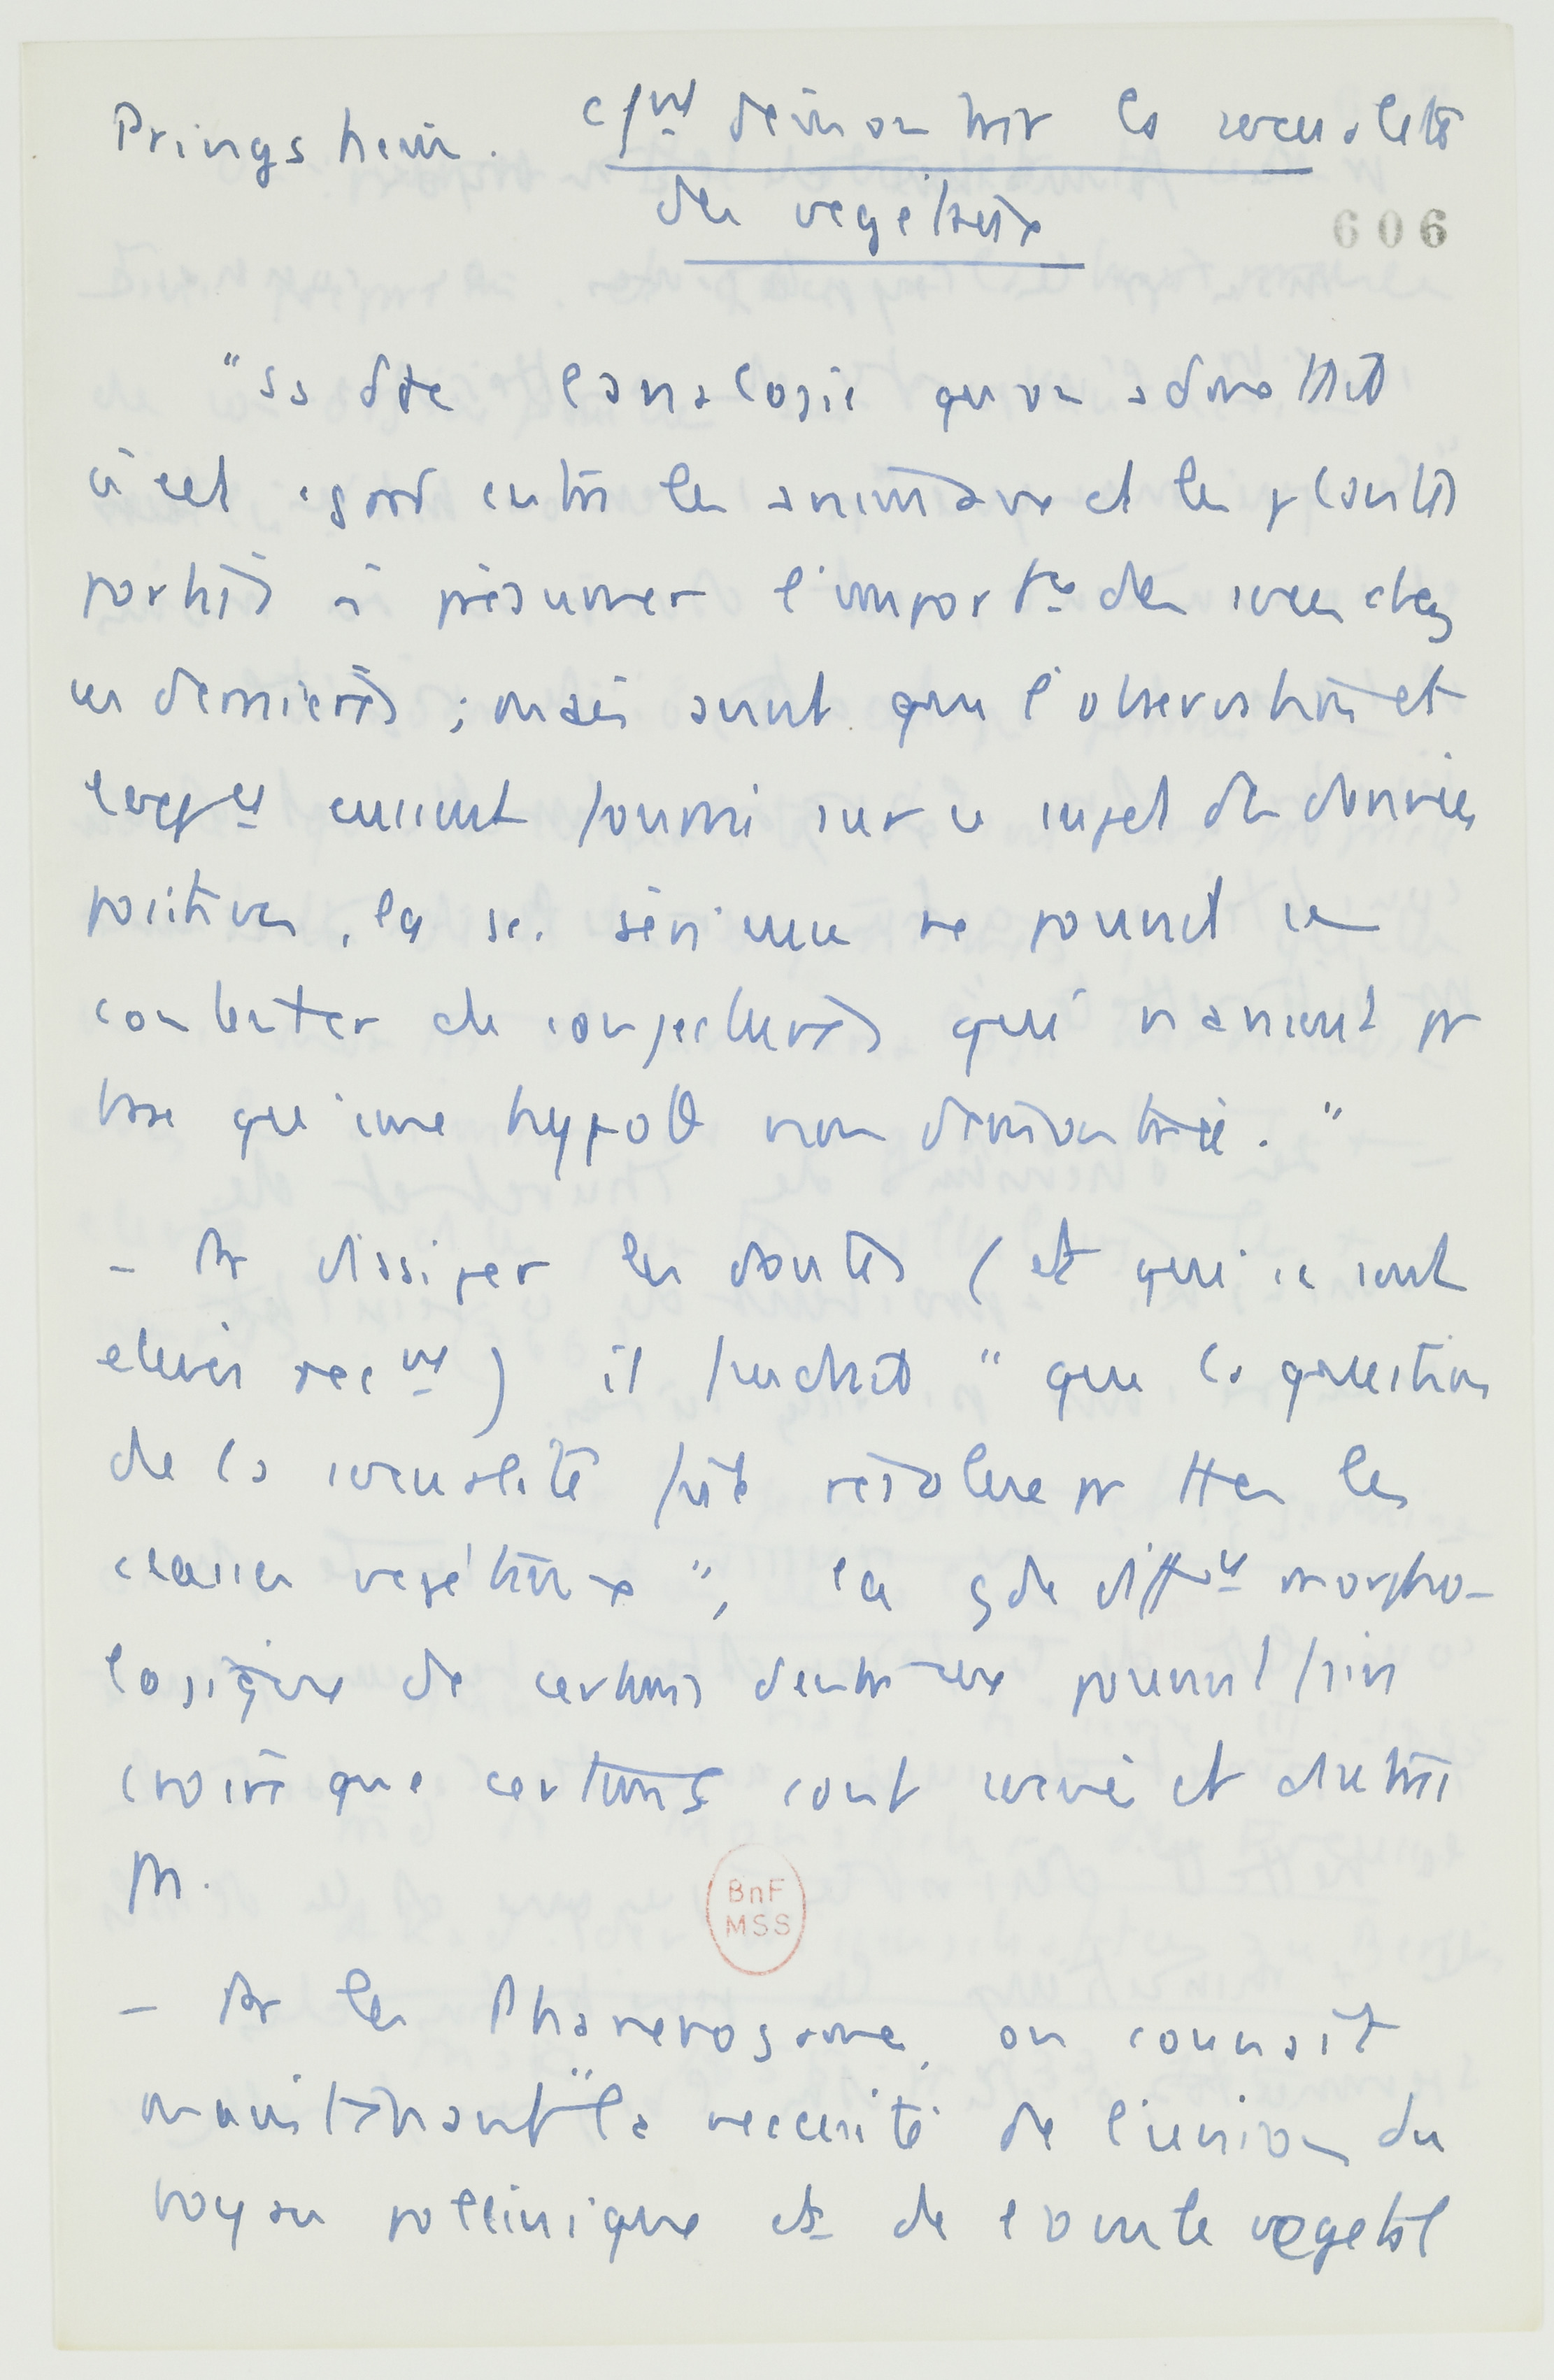 Pringsheim. c/nt démontrer la sexualité
des végétaux
606
"ss dte l'analogie qu'on admettait
à cet égard entre les animaux et les plantes
portait à présumer l'import^ce des sexes chez
ces dernières ; mais avant que l'observation et
l'exp^ce eussent fourni sur ce sujet des données
positives, la sc. sérieuse ne pouvait se
contenter de conjectures qui n'avaient pr
base qu'une hypoth non démontrée."
- Pr dissiper les doutes (et qui se sont
élevés réc^nt) il faudrait "que la question
de la sexualité fût résolue pr ttes les
classes végétaux", la gde diff^ce morpho-
logique de certains d'entre eux pouvant faire
croire que certains sont sexués et d'autres
pas.
BnF
MSS
- Pr les Phanérogame, on connait
maintenant "la nécessité de l'union du
boyau pollinique et de l'ovule végétal